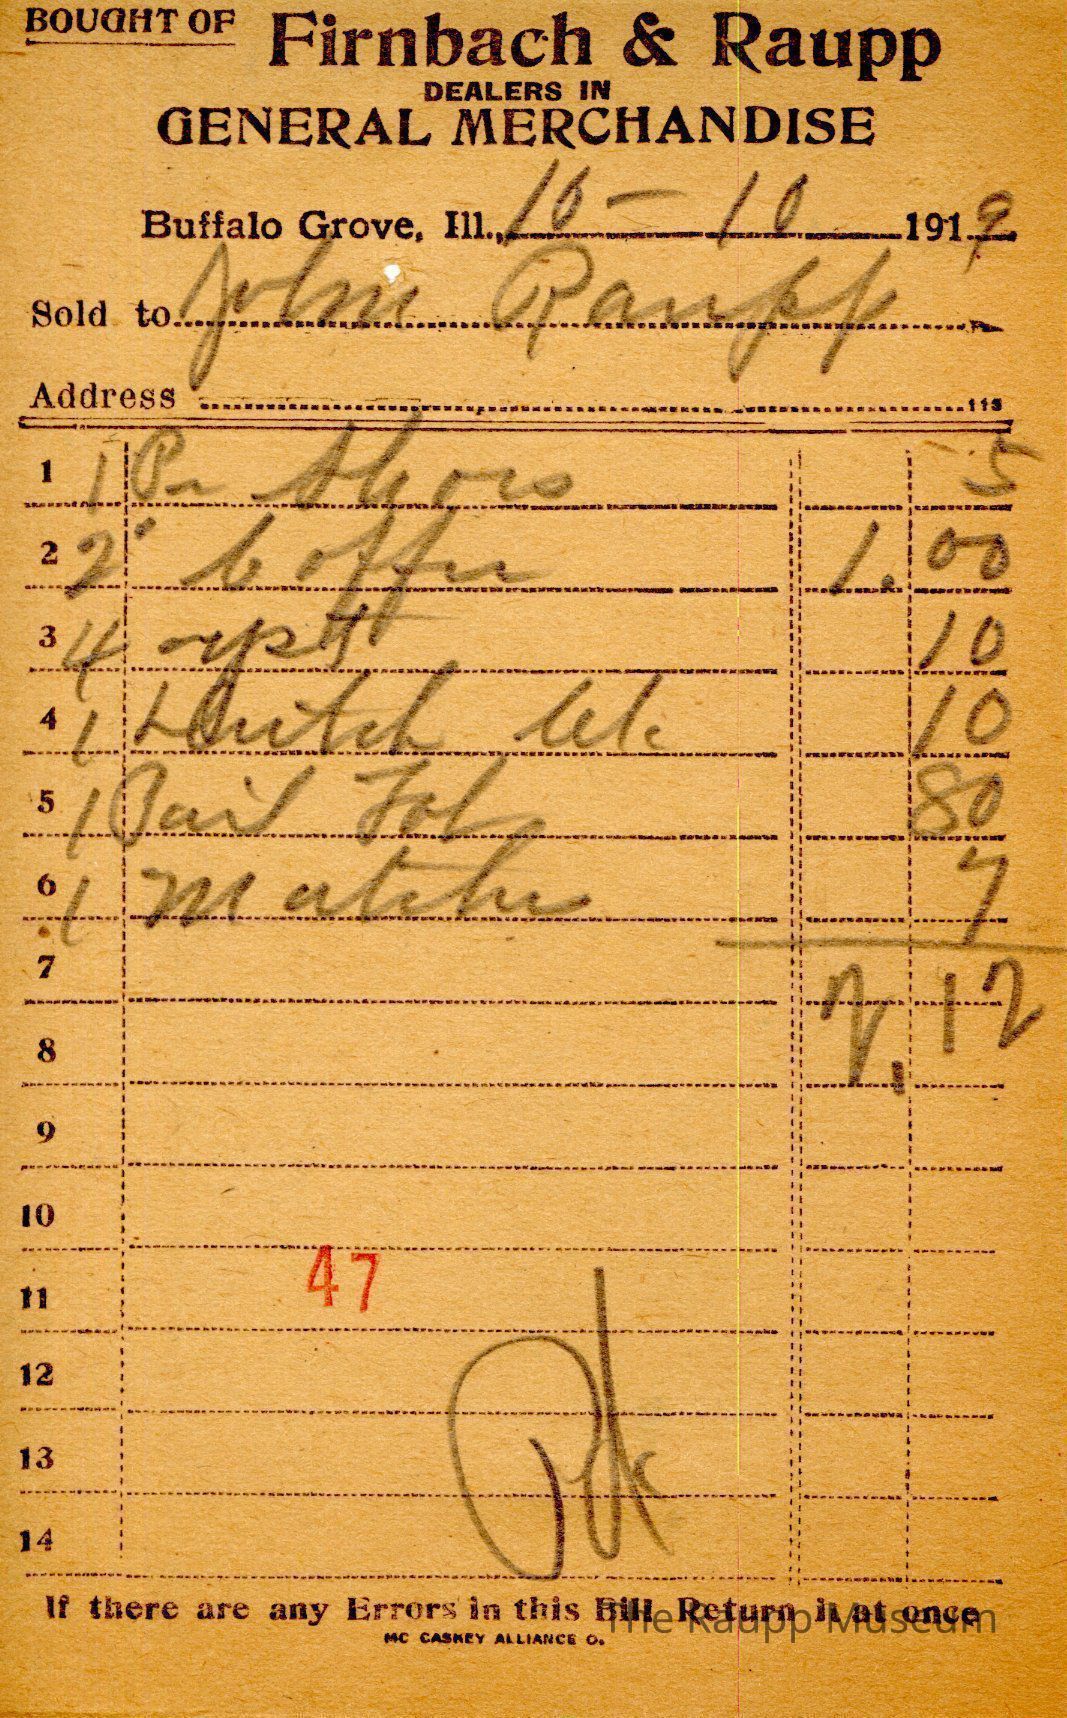 BOUGHT OF Firnbach & Raupp
DEALERS IN
GENERAL MERCHANDISE
Buffalo Grove, Ill., 10-10 1919
Sold to John Raupp
Address 115
1 1 Pr Shoes 5
2 2 " Coffee 1.00
3 4 10
4 1 Dutch Cl. 10
5 1 Pail Tob 80
6 1 Matches 7
7 2,12
8
9
10
11 47
12
13
14
If there are any Errors in this Bill Return it at once
The Raupp Museum
MC CASKEY ALLIANCE O.